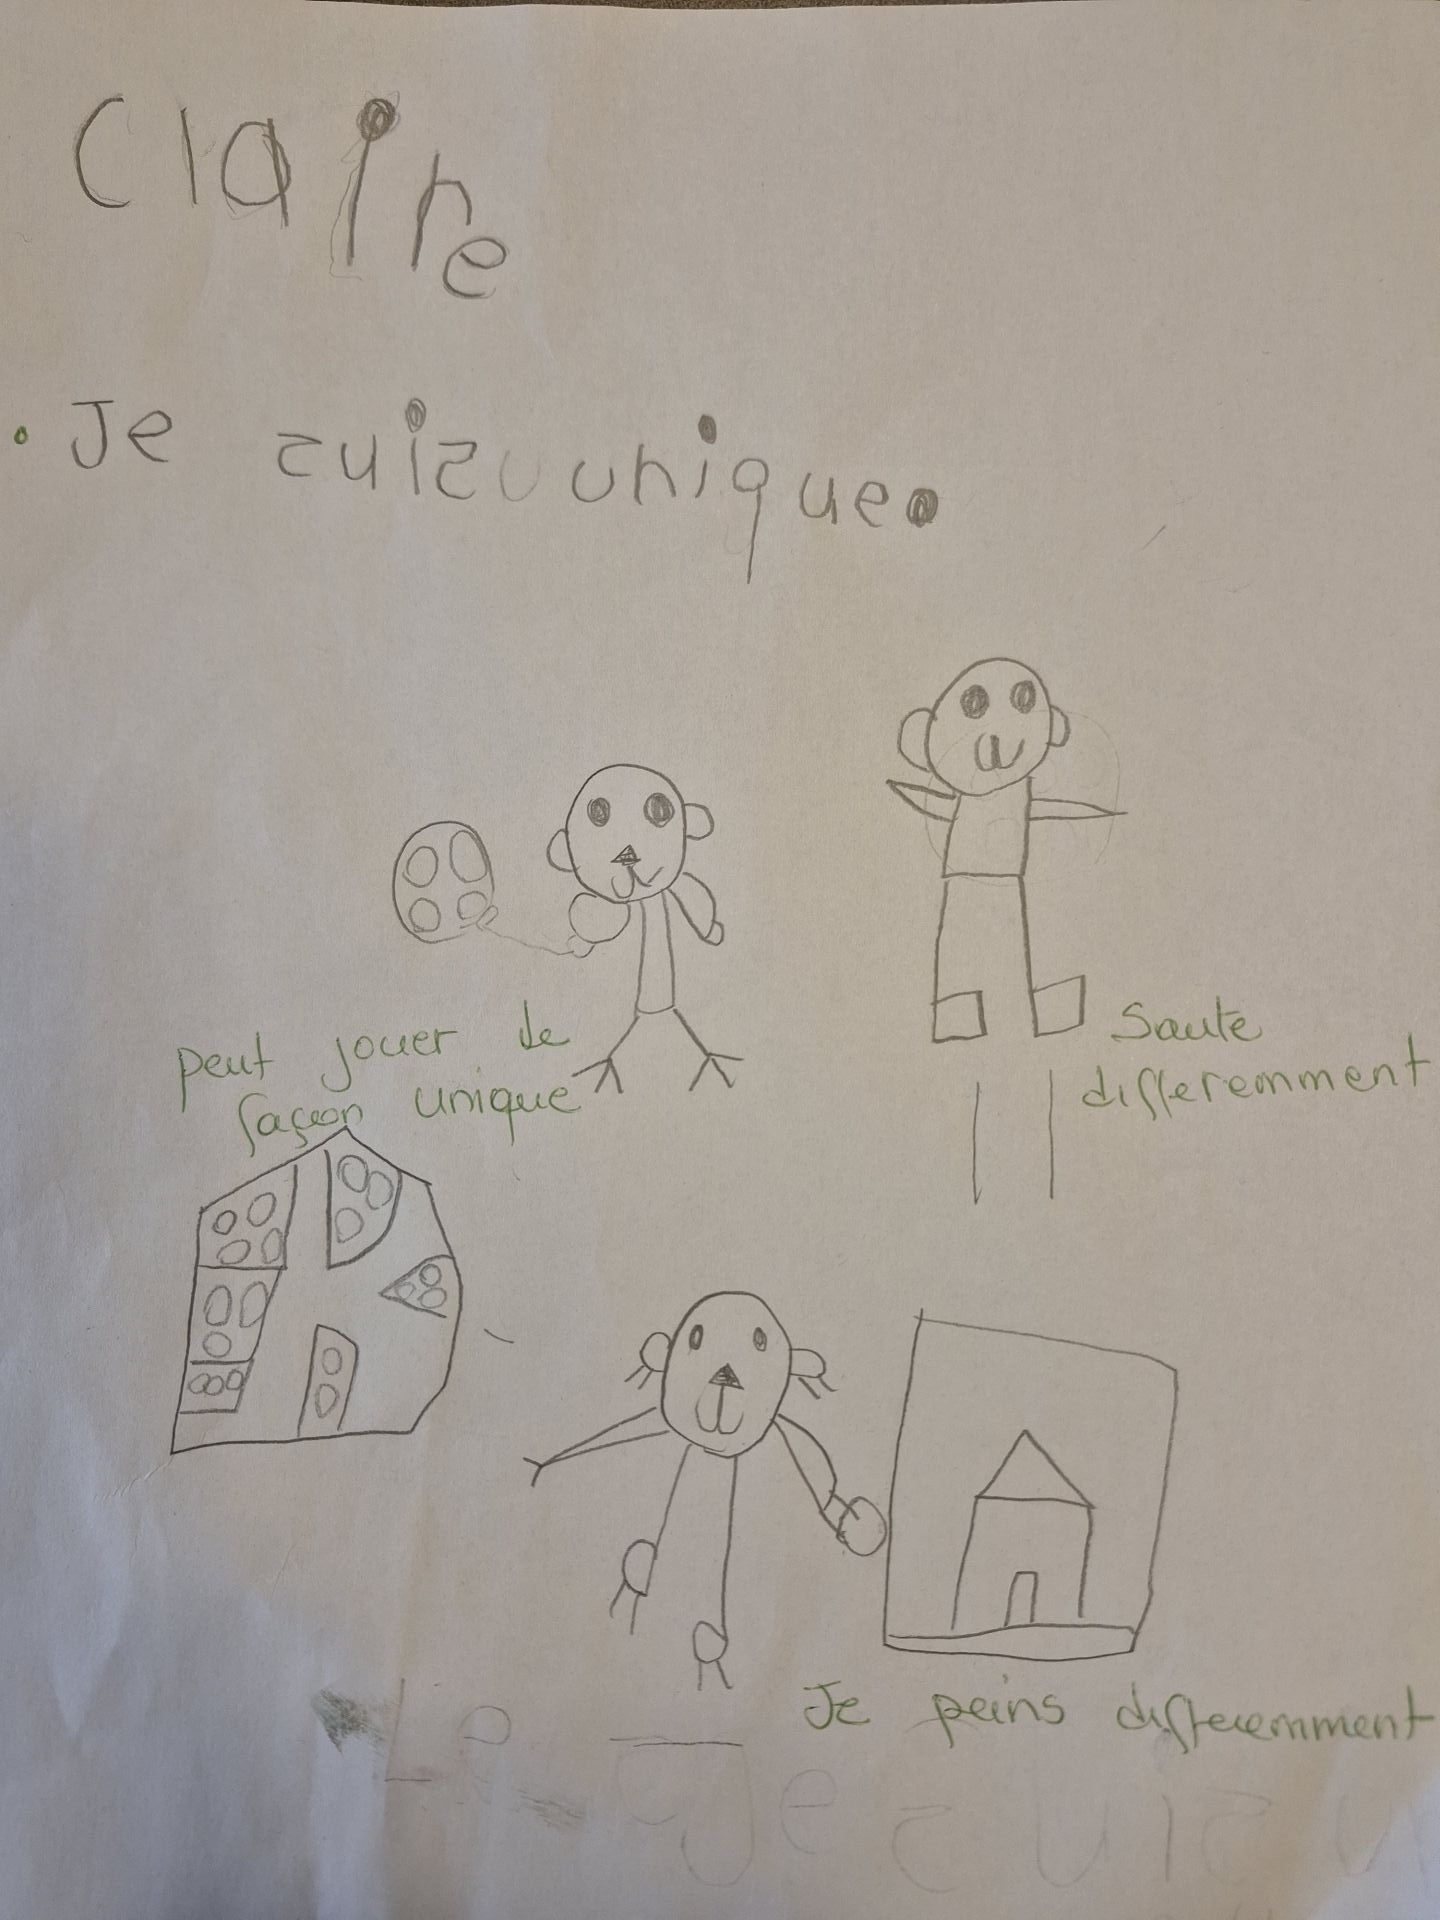 Claire
Je zuizuunique.
Saute
differemment
peut jouer de
façon unique
Je peins differemment